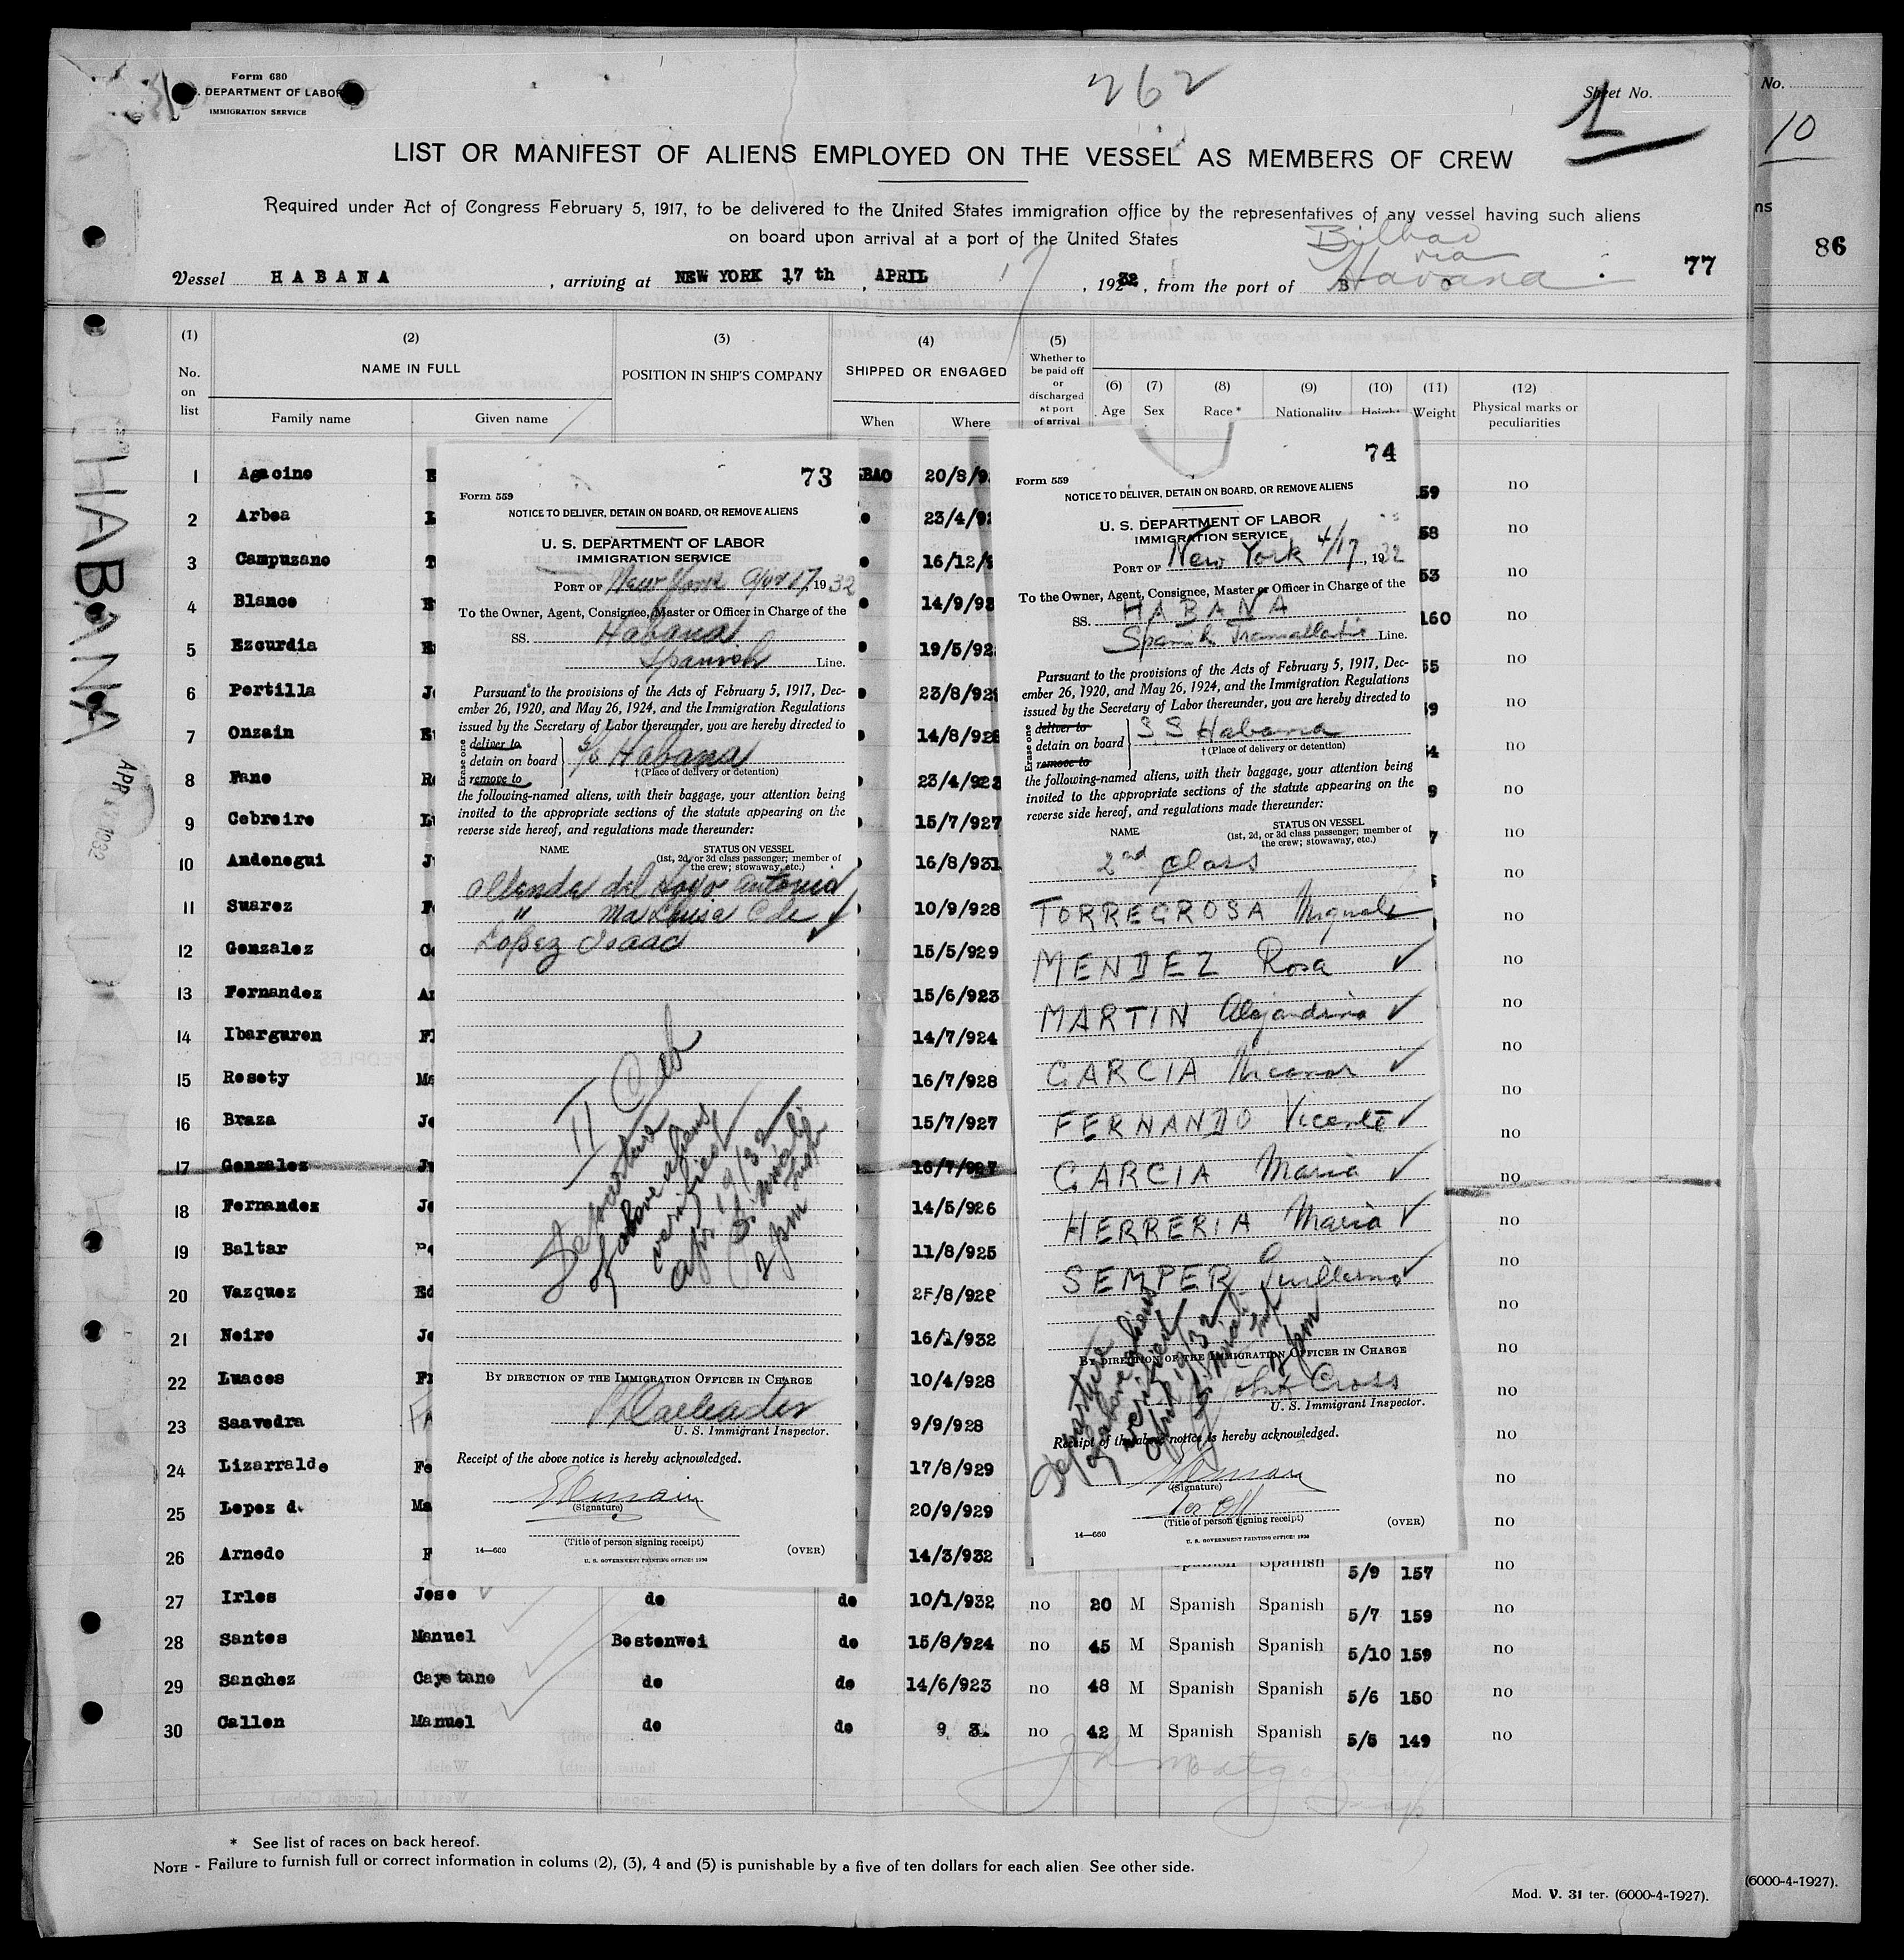 Form 680
. DEPARTMENT OF LABOR
IMMIGRATION SERVICE
262
Sheet No.
1
LIST OR MANIFEST OF ALIENS EMPLOYED ON THE VESSEL AS MEMBERS OF CREW
Required under Act of Congress February 5, 1917, to be delivered to the United States immigration office by the representatives of any vessel having such aliens
on board upon arrival at a port of the United States
Bilbao
via
Vessel HABANA , arriving at NEW YORK 17 th , APRIL 17 , 1932 , from the port of Havana
77
No.
10
ns
86
HABANA
APR 17 1932
(1) No. on list
(2) NAME IN FULL
Family name Given name
(3) POSITION IN SHIP'S COMPANY
(4) SHIPPED OR ENGAGED
When Where
(5) Whether to be paid off or discharged at port of arrival
(6) Age
(7) Sex
(8) Race*
(9) Nationality
(10) Height
(11) Weight
(12) Physical marks or peculiarities
1 Agacino E BAO 20/8/9 59 no
2 Arbea 23/4/92 58 no
3 Campuzano T 16/12/9 53 no
4 Blanco 14/9/93 160 no
5 Ezcurdia 19/5/92 55 no
6 Portilla J 23/8/929 59 no
7 Onzain 14/8/928 no
8 Fano R 23/4/923 no
9 Cebreiro L 15/7/927 no
10 Andonegui J 16/8/931 no
11 Suarez 10/9/928 no
12 Gonzalez 15/5/929 no
13 Fernandez A 15/6/923 no
14 Ibarguren F 14/7/924 no
15 Rosety M 16/7/928 no
16 Braza Jo 15/7/927 no
17 Gonzalez J 16/7/927 no
18 Fernandez Jo 14/5/926 no
19 Baltar 11/8/925 no
20 Vazquez Ed 25/8/928 no
21 Neiro Jo 16/1/932 no
22 Luaces F 10/4/928 no
23 Saavedra 9/9/928 no
24 Lizarralde Fe 17/8/929 no
25 Lopez d. Ma 20/9/929 no
26 Arnedo F 14/3/932 Spanish Spanish 5/9 157 no
27 Irles Jose do do 10/1/932 no 20 M Spanish Spanish 5/7 159 no
28 Santos Manuel Bostonwei do 15/8/924 no 45 M Spanish Spanish 5/10 159 no
29 Sanchez Cayetano do do 14/6/923 no 48 M Spanish Spanish 5/6 150 no
30 Callon Manuel do do 9 3. no 42 M Spanish Spanish 5/5 149 no
73
Form 559
NOTICE TO DELIVER, DETAIN ON BOARD, OR REMOVE ALIENS
U. S. DEPARTMENT OF LABOR
IMMIGRATION SERVICE
PORT OF New York Apr 17, 1932
To the Owner, Agent, Consignee, Master or Officer in Charge of the
SS. Habana
Spanish Line.
Pursuant to the provisions of the Acts of February 5, 1917, Dec-
ember 26, 1920, and May 26, 1924, and the Immigration Regulations
issued by the Secretary of Labor thereunder, you are hereby directed to
Erase one
deliver to
detain on board
remove to
S/S Habana
† (Place of delivery or detention)
the following-named aliens, with their baggage, your attention being
invited to the appropriate sections of the statute appearing on the
reverse side hereof, and regulations made thereunder:
NAME STATUS ON VESSEL
(1st, 2d, or 3d class passenger; member of
the crew; stowaway, etc.)
Allende del Antonio
" Ma Luisa C de ✓
Lopez Isaac ✓
II Cab
Departure
of above aliens
verified
Apr 19/32
2 pm
BY DIRECTION OF THE IMMIGRATION OFFICER IN CHARGE
U. S. Immigrant Inspector.
Receipt of the above notice is hereby acknowledged.
(Signature)
(Title of person signing receipt)
14—660
U. S. GOVERNMENT PRINTING OFFICE: 1930
(OVER)
74
Form 559
NOTICE TO DELIVER, DETAIN ON BOARD, OR REMOVE ALIENS
U. S. DEPARTMENT OF LABOR
IMMIGRATION SERVICE
PORT OF New York 4/17, 1932
To the Owner, Agent, Consignee, Master or Officer in Charge of the
SS. HABANA
Spanish Transatlantic Line.
Pursuant to the provisions of the Acts of February 5, 1917, Dec-
ember 26, 1920, and May 26, 1924, and the Immigration Regulations
issued by the Secretary of Labor thereunder, you are hereby directed to
Erase one
deliver to
detain on board
remove to
S.S Habana
† (Place of delivery or detention)
the following-named aliens, with their baggage, your attention being
invited to the appropriate sections of the statute appearing on the
reverse side hereof, and regulations made thereunder:
NAME STATUS ON VESSEL
(1st, 2d, or 3d class passenger; member of
the crew; stowaway, etc.)
2nd class
TORREGROSA Miguel
MENDEZ Rosa ✓
MARTIN Alejandrina ✓
GARCIA Nicanor ✓
FERNANDO Vicente ✓
GARCIA Maria ✓
HERRERIA Maria ✓
SEMPER Guillermo ✓
Departure
of above aliens
verified
Apr 19/32
2 pm
BY DIRECTION OF THE IMMIGRATION OFFICER IN CHARGE
Cross
U. S. Immigrant Inspector.
Receipt of the above notice is hereby acknowledged.
(Signature)
1er Off
(Title of person signing receipt)
14—660
U. S. GOVERNMENT PRINTING OFFICE: 1930
(OVER)
* See list of races on back hereof.
NOTE - Failure to furnish full or correct information in colums (2), (3), 4 and (5) is punishable by a five of ten dollars for each alien See other side.
Mod. V. 31 ter. (6000-4-1927).
(6000-4-1927).